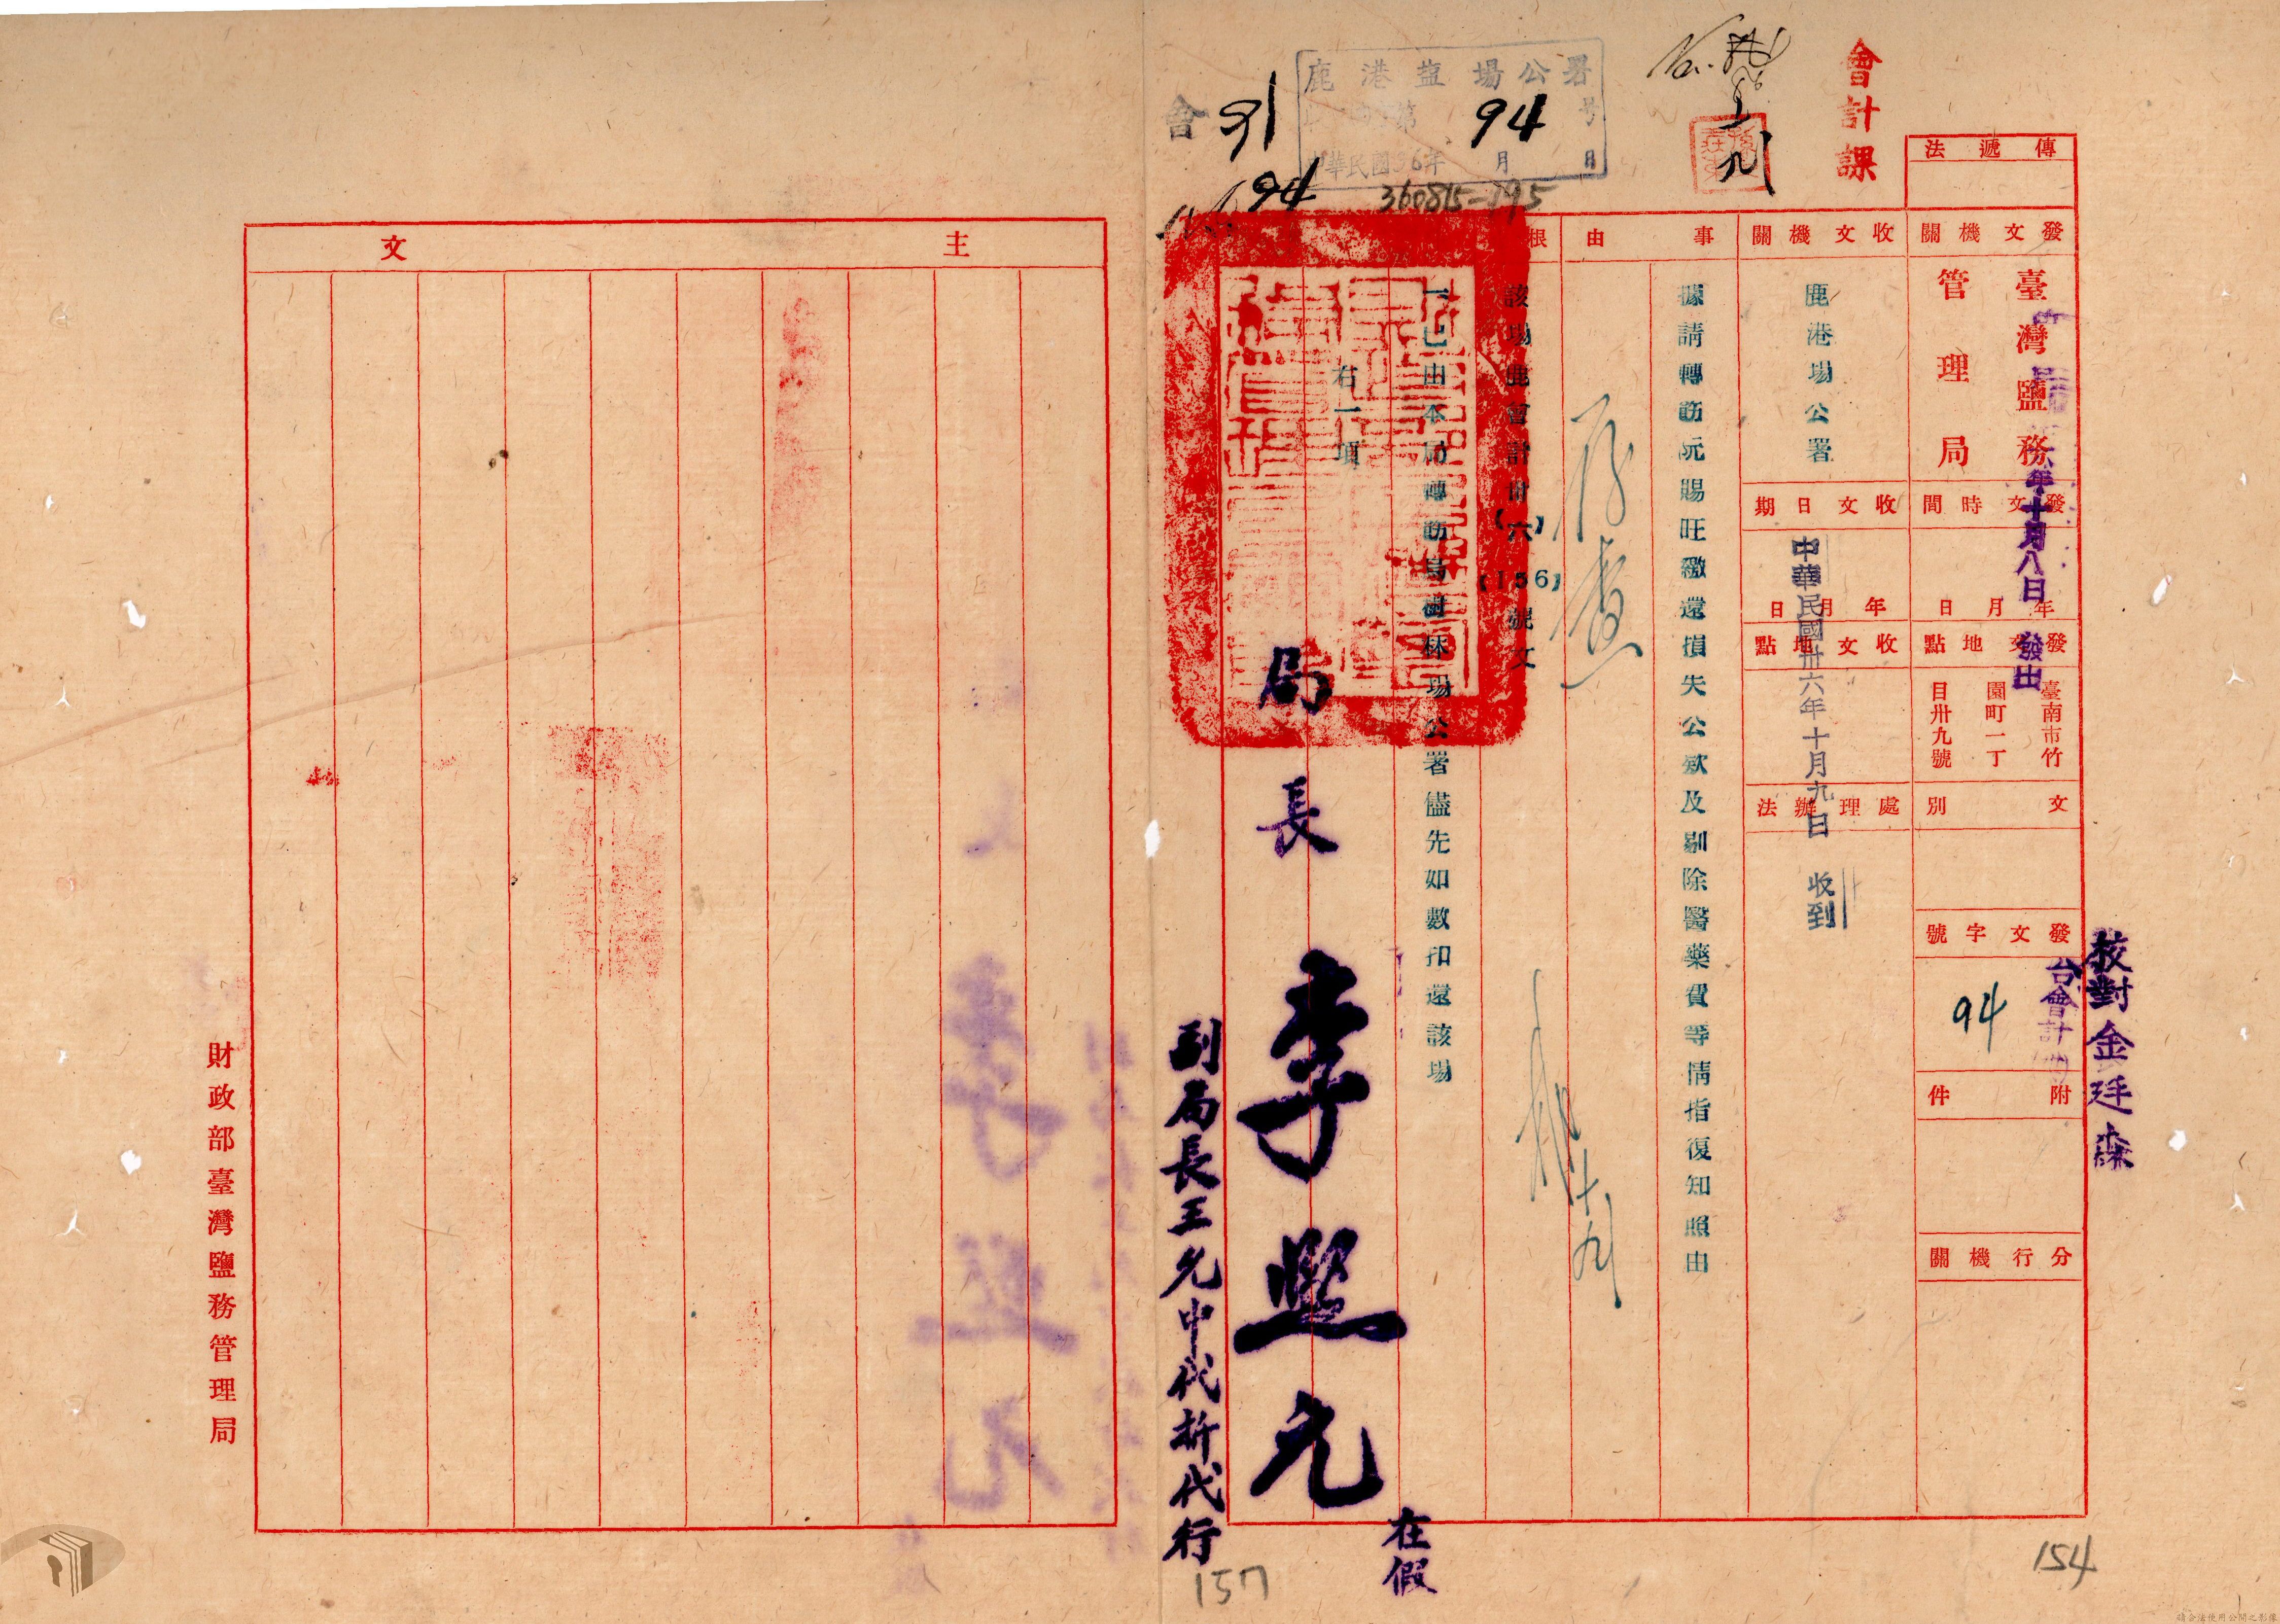 會計課
傳遞法
發文機關
臺灣鹽務
管理局
發文時間
年十月八日發出
年月日
發文地點
臺南市竹
園町一丁
目卅九號
文別
發文字號
台會計
94
附件
分行機關
校對金廷森
收文機關
鹿港場公署
收文日期
年月日
中華民國卅六年十月九日 收到
收文地點
處理辦法
事由
據請轉飭阮賜旺繳還損失公欵及剔除醫藥費等情指復知照由
存查
根
該場鹿會計卅(六)(156)號文
一已由本局轉飭烏樹林場公署儘先如數扣還該場
右一項
局長 李熙允
在假
副局長王允中代拆代行
鹿港鹽場公署
第94号
中華民國36年 月 日
會 91
94
360815-895
No.
主文
財政部臺灣鹽務管理局
154
157
請合法使用公開之影像